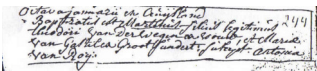 Octava Januarii ex Cruijsland 244
Baptizatus est Matthias filius legitimus
Theodori Van Der Wegen ex Woude et Maria
Van Gastel ex Groot sundert. suscept. Antonia
Van Roij.